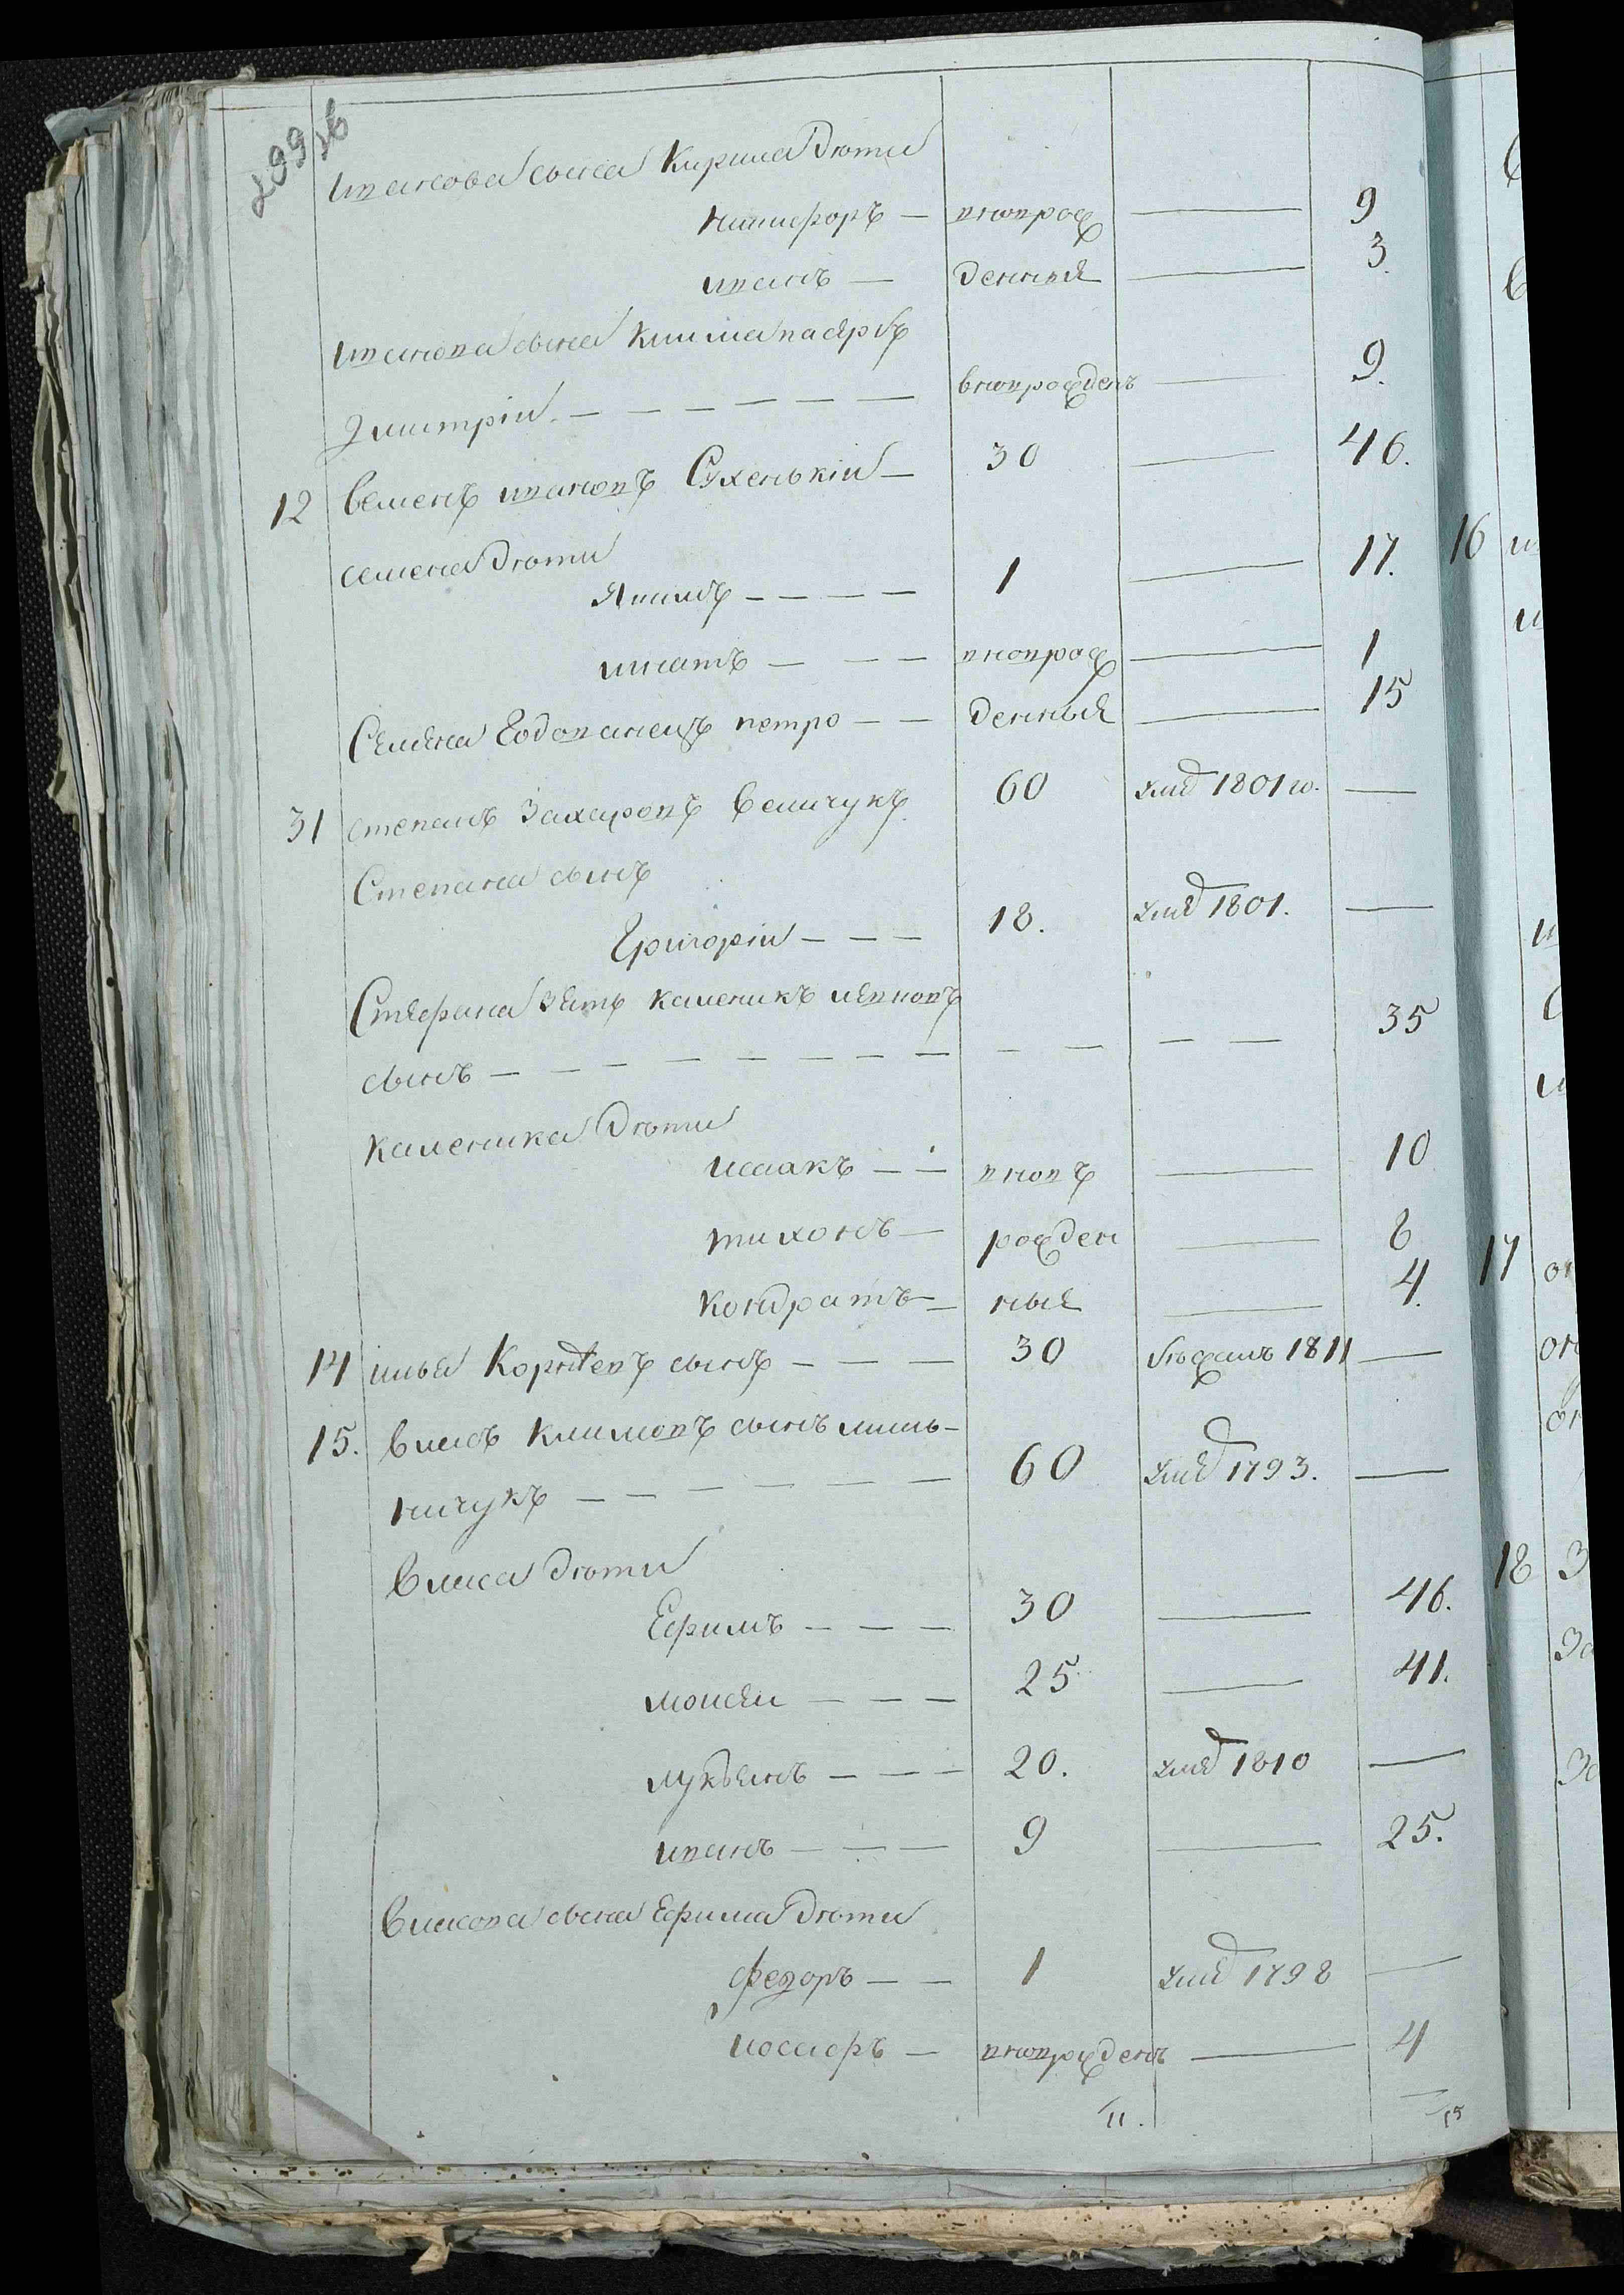 299 об
Иванова сына Кирила дѣти
Никифоръ — вновьрож — 9
иванъ — денныя — 3.
иванова сына Клима пасербъ
Дмитрій — вновьрожденъ — 9.
12 Семенъ ивановъ Сухенькій — 30 — 46.
Семена дѣти
Якимъ — 1 — 17.
игнатъ — вновьрож — 1
Семена годованецъ петро — денныя — 15
31 степанъ Захаровъ Семчукъ 60 умѣ 1801 го. —
Степана сынъ
Григорій — 18. умѣ 1801. —
Стефана зять каленикъ
сынъ — 35
каленика дѣти
исаакъ — вновь — 10
тихонъ — рожден — 8
Кондратъ — ныя — 4.
14 илья Корнѣевъ сынъ — 30 бѣжалъ 1811 —
15. Власъ Климовъ сынъ мель-
ничукъ — 60 умѣ 1793. —
Власа дѣти
Ефимъ — 30 — 46.
моисей — 25 — 41.
лукьянъ — 20. умѣ 1810 —
иванъ — 9 — 25.
Власова сына Ефима дѣти
федоръ — 1 умѣ 1798 —
иосифъ — вновьрожденъ — 4
11. 15
16
17
18